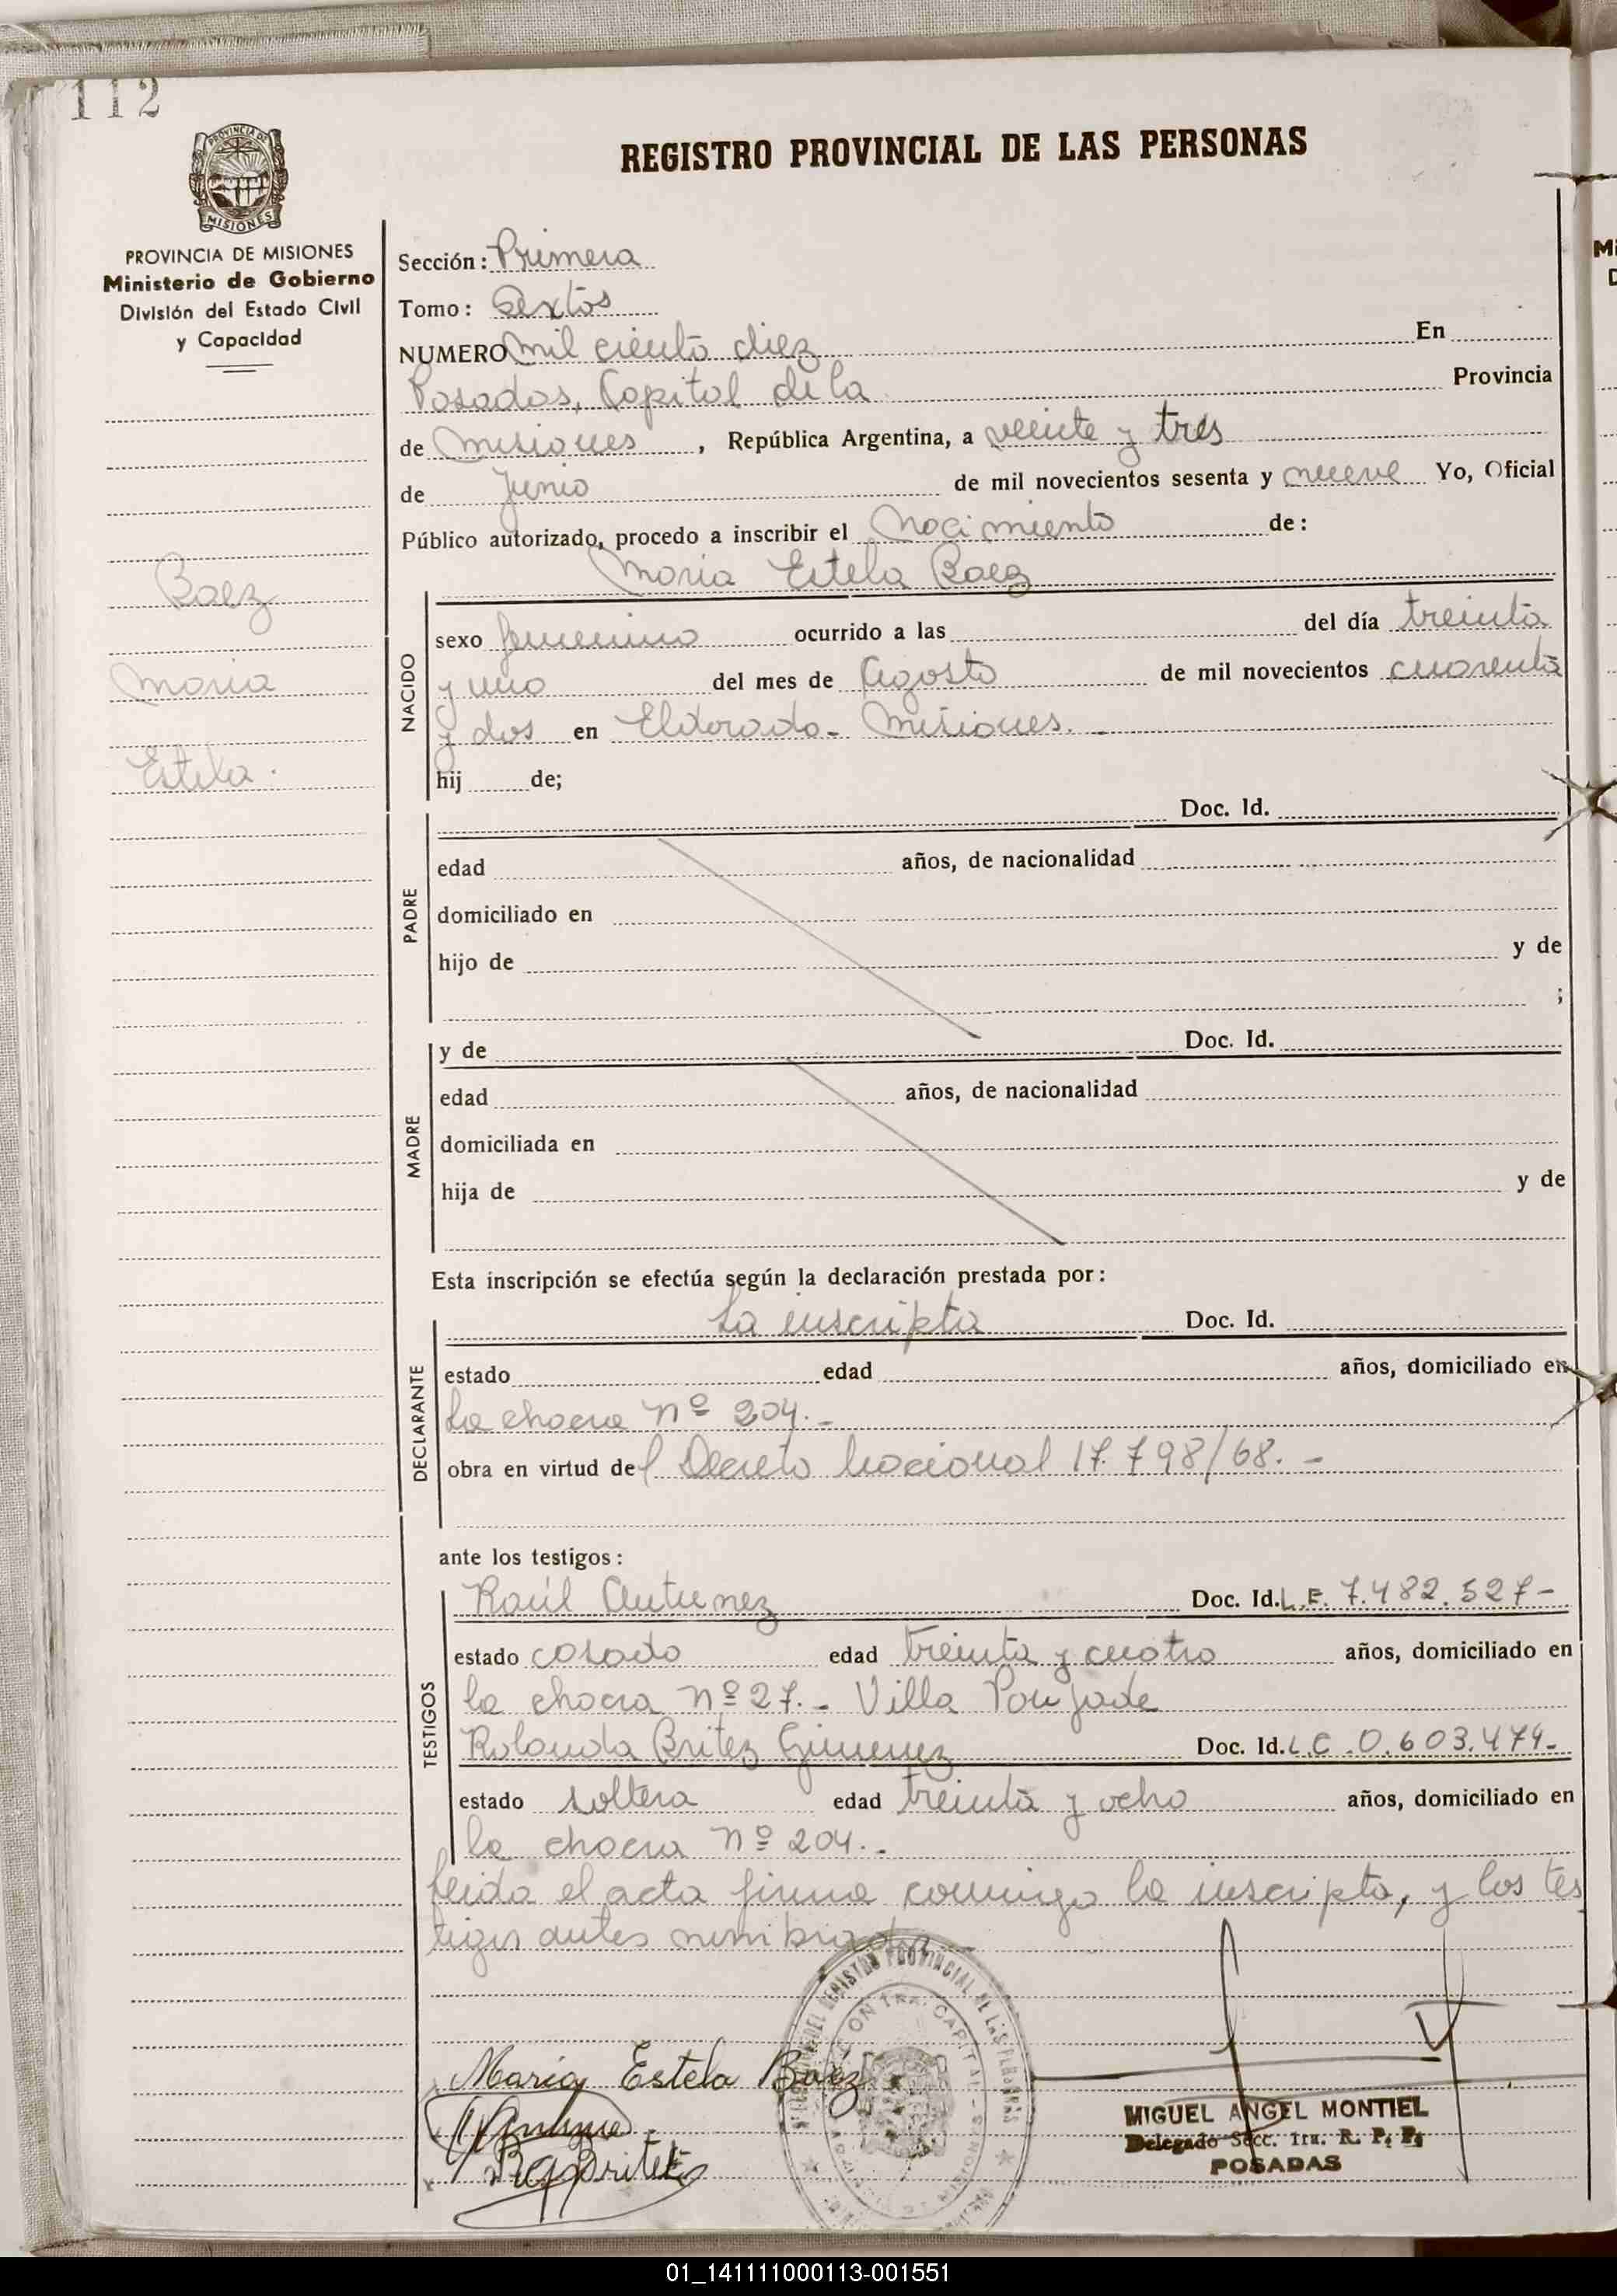 112
REGISTRO PROVINCIAL DE LAS PERSONAS
PROVINCIA DE MISIONES
Ministerio de Gobierno
División del Estado Civil
y Capacidad
Baez
Maria
Estela.
Sección: Primera
Tomo: Sextos
NUMERO mil ciento diez En
Posadas, Capital de la Provincia
de Misiones, República Argentina, a veinte y tres
de Junio de mil novecientos sesenta y nueve Yo, Oficial
Público autorizado, procedo a inscribir el Nacimiento de:
Maria Estela Baez
NACIDO
sexo femenino ocurrido a las del día treinta
y uno del mes de Agosto de mil novecientos cuarenta
y dos en Eldorado - Misiones. -
hij de;
PADRE
Doc. Id.
edad años, de nacionalidad
domiciliado en
hijo de y de
;
MADRE
y de Doc. Id.
edad años, de nacionalidad
domiciliada en
hija de y de
Esta inscripción se efectúa según la declaración prestada por:
DECLARANTE
La inscripta Doc. Id.
estado edad años, domiciliado en
la chacra Nº 204. -
obra en virtud del Decreto Nacional 17.798/68. -
ante los testigos:
TESTIGOS
Raúl Antunez Doc. Id. L.E. 7.482.527-
estado casado edad treinta y cuatro años, domiciliado en
la chacra Nº 27. - Villa Poujade
Rolanda Britez Gimenez Doc. Id. L.C. 0.603.474-
estado soltera edad treinta y ocho años, domiciliado en
la chacra Nº 204. -
Leida el acta firma conmigo la inscripta, y los tes
tigos antes nombrados
Maria Estela Baéz
MIGUEL ANGEL MONTIEL
Delegado Secc. 1ra. R. P. P.
POSADAS
01_141111000113-001551